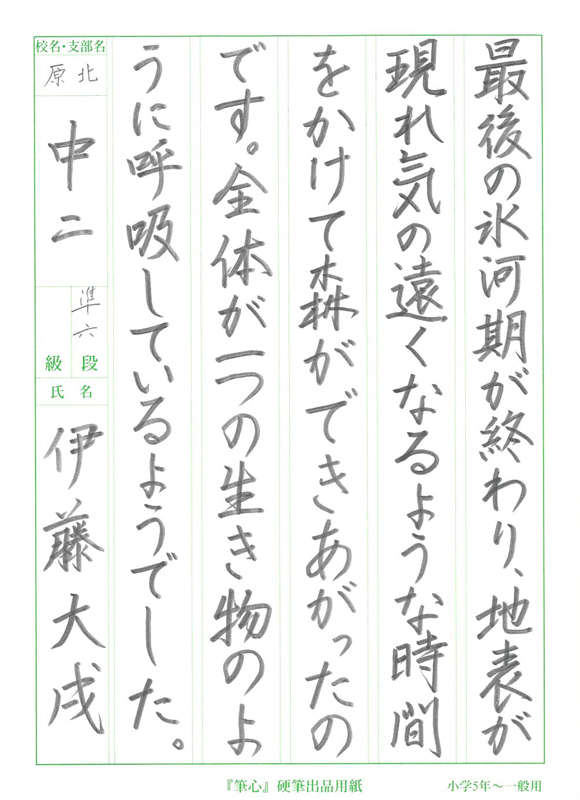 最後の氷河期が終わり、地表が
現れ気の遠くなるような時間
をかけて森ができあがったの
です。全体が一つの生き物のよ
うに呼吸しているようでした。
校名・支部名
原北
中二
準六
級 段
氏名
伊藤大成
『筆心』硬筆出品用紙
小学5年～一般用